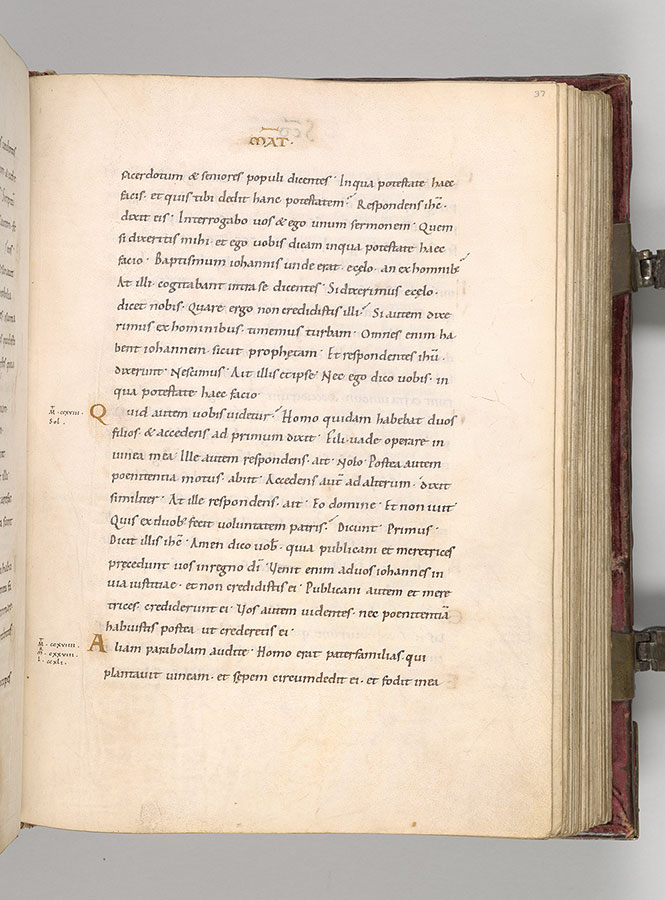 37
MAT·
sacerdotum & seniores populi dicentes· Inqua potestate haec
facis· et quis tibi dedit hanc potestatem? Respondens ihc̄·
dixit eis· Interrogabo uos & ego unum sermonem· Quem
si dixeritis mihi· et ego uobis dicam inqua potestate haec
facio· Baptismum iohannis unde erat· ecęlo· an ex hominib;?
At illi· cogitabant intra se dicentes· Si dixerimus ecęlo·
dicet nobis· Quare ergo non credidistis illi? Si autem dixe
rimus ex hominibus· timemus turbam· Omnes enim ha
bent iohannem· sicut prophetam· Et respondentes ihū·
dixerunt· Nescimus· Ait illis et ipse· Nec ego dico uobis· in
qua potestate haec facio·
Quid autem uobis uidetur? Homo quidam habebat duos
filios· & accedens ad primum dixit· Fili· uade operare in
uinea mea· Ille autem respondens· ait· Nolo· Postea autem
poenitentia motus· abiit· Accedens aut̄ ad alterum· dixit
similiter· At ille respondens· ait· Eo domine· Et non iuit·
Quis ex duob; fecit uoluntatem patris? Dicunt· Primus·
Dicit illis ihc̄· Amen dico uob̄· quia publicani et meretrices
precedunt uos inregno dī· Venit enim ad uos iohannes in
uia iustitiae· et non credidistis ei· Publicani autem et mere
trices· crediderunt ei· Vos autem uidentes· nec poenitentiā
habuistis postea ut crederetis ei·
Aliam parabolam audite· Homo erat paterfamilias· qui
plantauit uineam· et sepem circumdedit ei· et fodit inea